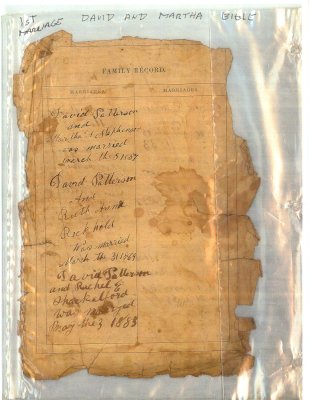 1ST MARRIAGE
DAVID AND MARTHA BIBLE
FAMILY RECORD.
MARRIAGES
MARRIAGES
David Patterson
and
Martha A Stephenson
was married
march th 5 1857
David Patterson
And
Ruth Annah
Rickhold
Was married
March th 31 1869
David Patterson
and Rachel G
Shackelford
was maryed
may the 3 1883